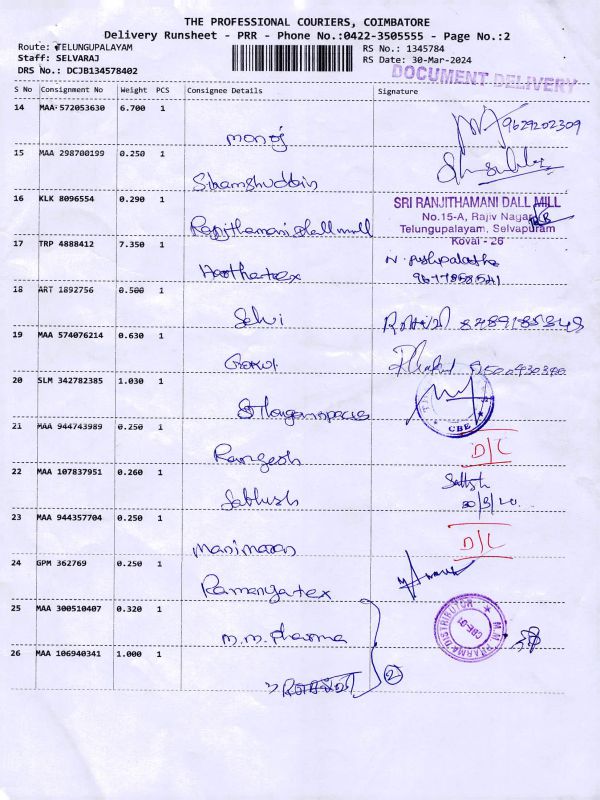 THE PROFESSIONAL COURIERS, COIMBATORE
Delivery Runsheet - PRR - Phone No.:0422-3505555 - Page No.:2
Route: TELUNGUPALAYAM
RS No.: 1345784
Staff: SELVARAJ
RS Date: 30-Mar-2024
DRS No.: DCJB134578402
DOCUMENT DELIVERY
S No Consignment No Weight PCS Consignee Details Signature
14 MAA 572053630 6.700 1
manoj
9629202309
15 MAA 298700199 0.250 1
Shamshuddin
16 KLK 8096554 0.290 1
SRI RANJITHAMANI DALL MILL
No.15-A, Rajiv Nagar
Telungupalayam, Selvapuram
Kovai - 26
Ranjithamani dall mill
17 TRP 4888412 7.350 1
18 ART 1892756 0.500 1
Selvi
19 MAA 574076214 0.630 1
Gokul
20 SLM 342782385 1.030 1
CBE
21 MAA 944743989 0.250 1
Rangesh
D/C
22 MAA 107837951 0.260 1
Sathish
Sathish
23 MAA 944357704 0.250 1
manimaran
D/C
24 GPM 362769 0.250 1
Ramanyatex
25 MAA 300510407 0.320 1
M.M. Pharma
M.M. PHARMA DISTRIBUTOR
CBE-01
26 MAA 106940341 1.000 1
2